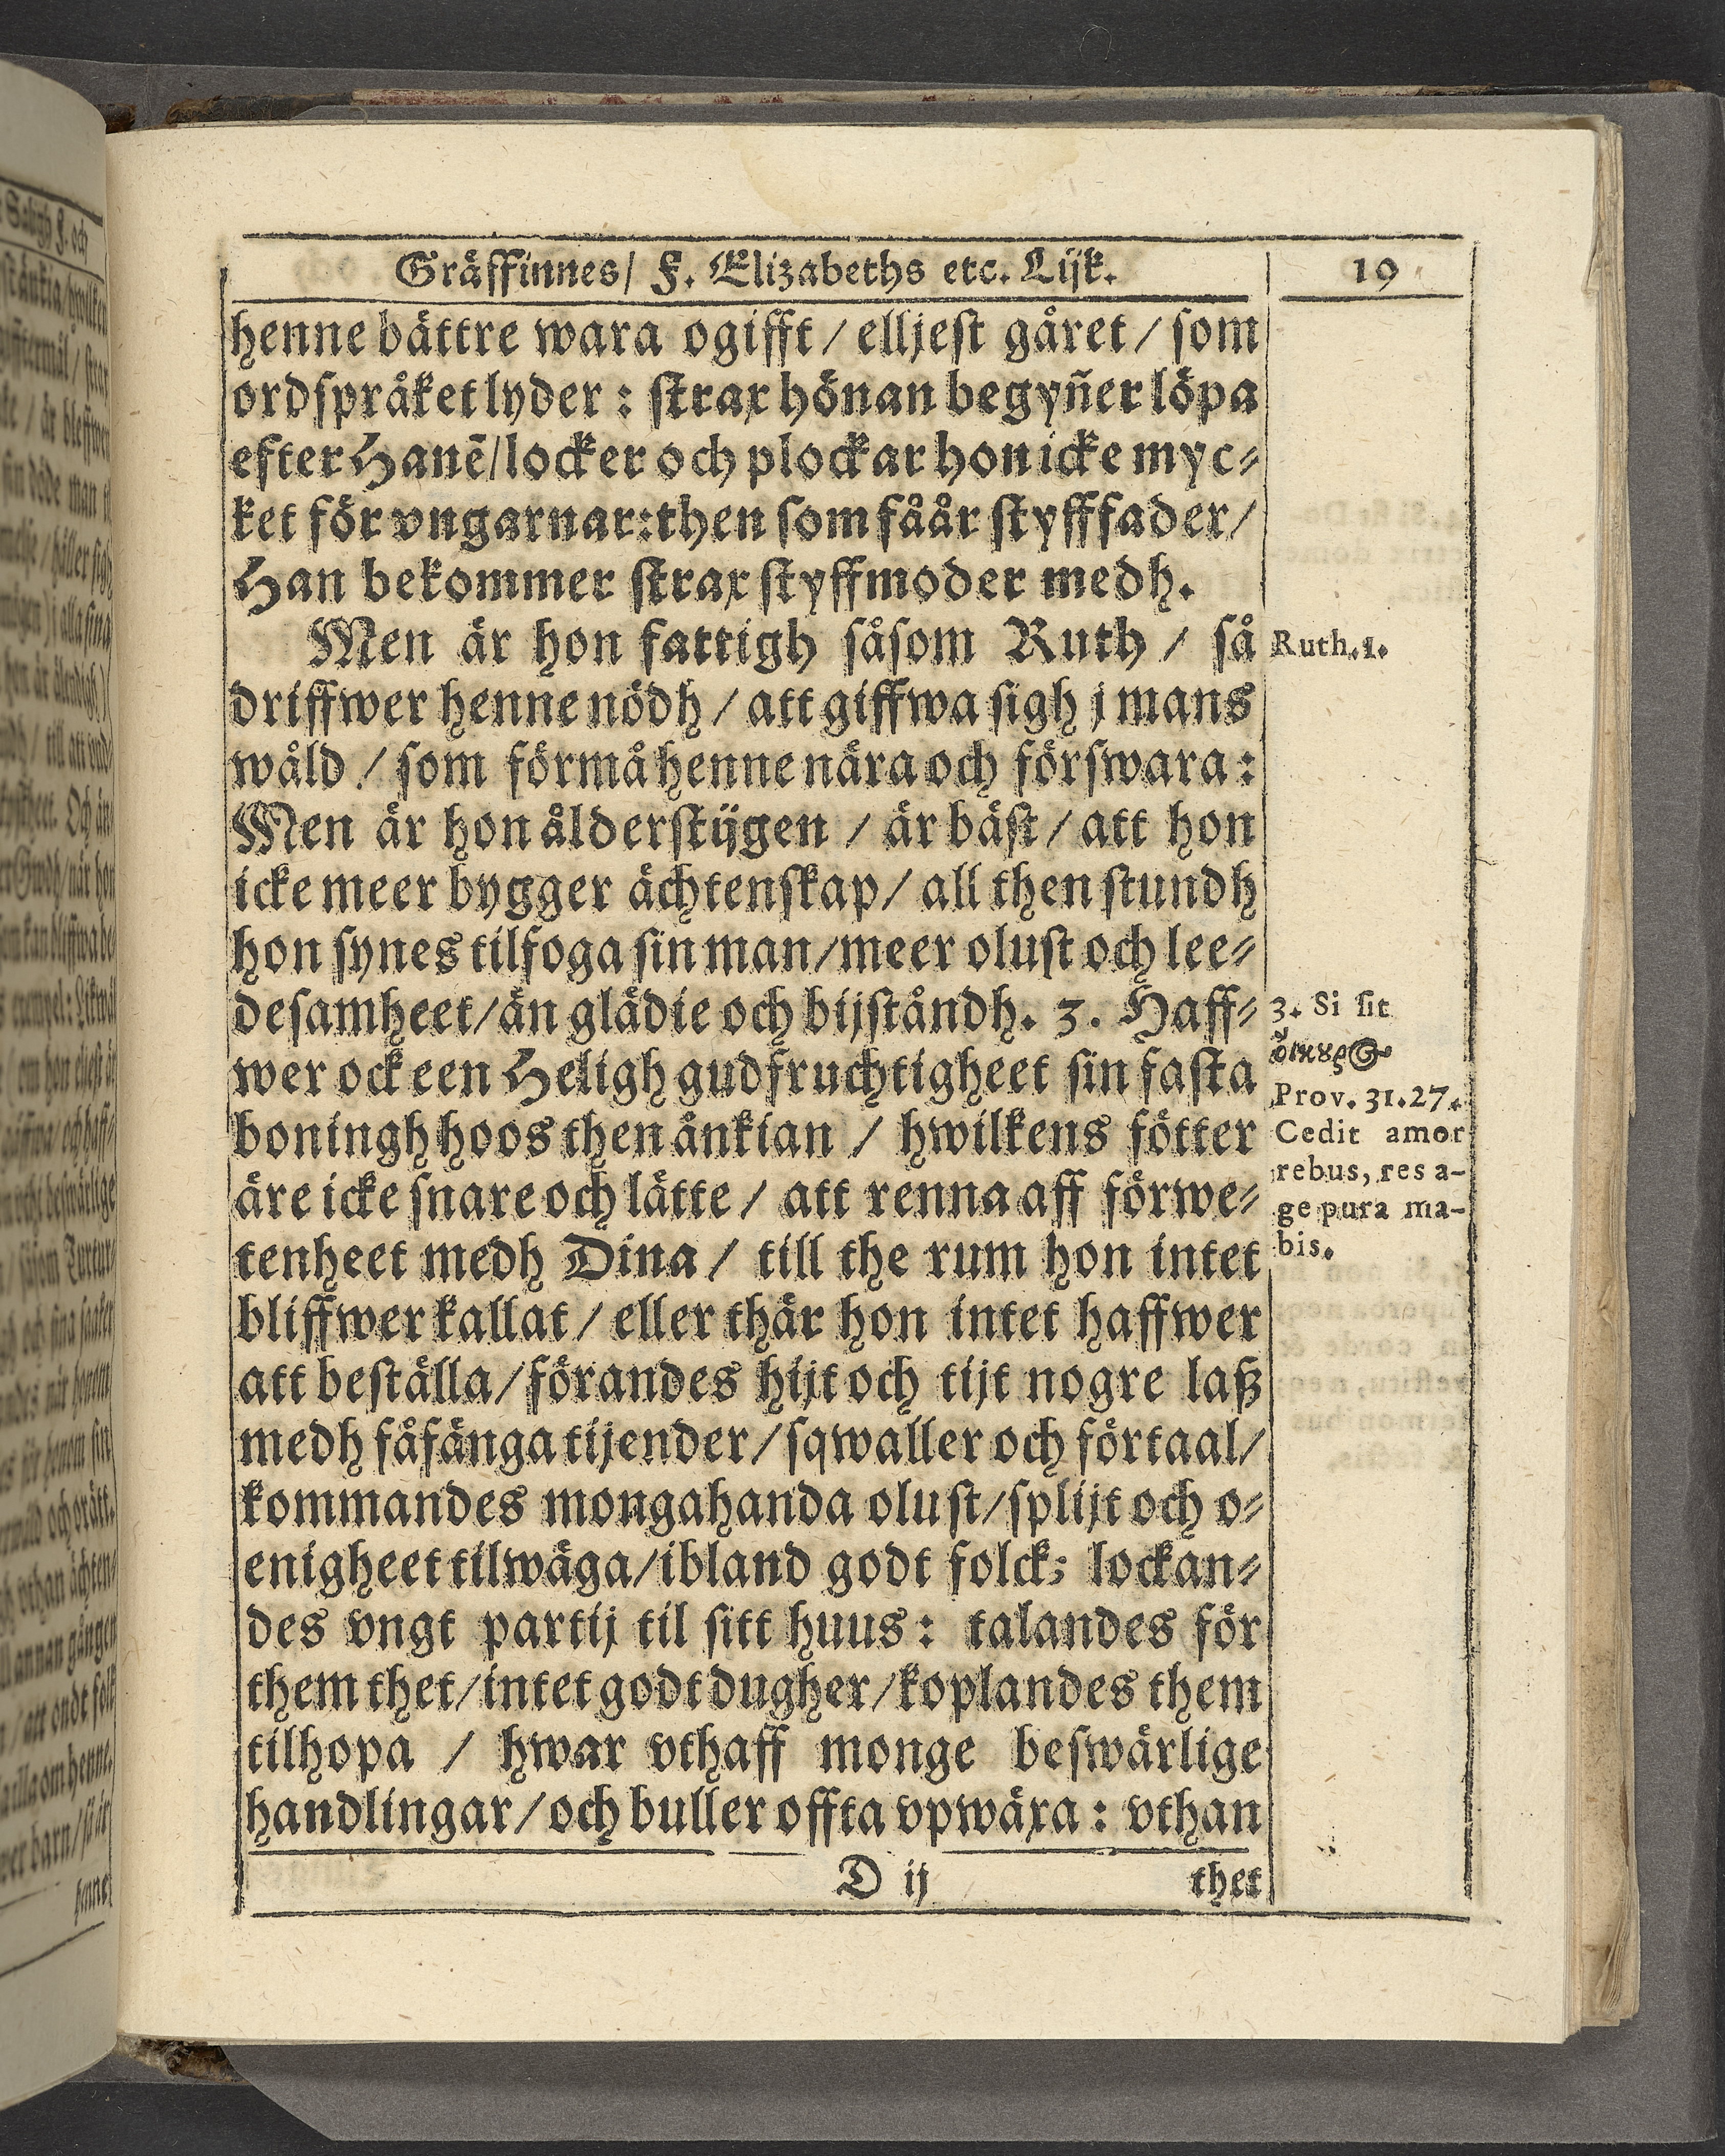 Gräffinnes/ F. Elizabeths etc. Lijk.
19
henne bättre wara ogifft / elljest gåret / som
ordspråket lyder : strax hönan begyñer löpa
efter Hanē/locker och plockar hon icke myc⸗
ket för vngarnar:then som fåår styfffader/
Han bekommer strax styffmoder medh.
Men är hon fattigh såsom Ruth / så
driffwer henne nödh / att giffwa sigh j mans
wåld / som förmå henne nära och förswara :
Men är hon ålderstijgen / är bäst / att hon
icke meer bygger ächtenskap / all then stundh
hon synes tilfoga sin man/meer olust och lee⸗
desamheet/än glädie och bijståndh. 3. Haff⸗
wer ock een Heligh gudfruchtigheet sin fasta
boningh hoos then änkian / hwilkens fötter
äre icke snare och lätte / att renna aff förwe⸗
tenheet medh Dina / till the rum hon intet
bliffwer kallat / eller thär hon intet haffwer
att beställa / förandes hijt och tijt nogre laß
medh fåfänga tijender/sqwaller och förtaal/
kommandes mongahanda olust/splijt och o⸗
enigheet tilwäga/ibland godt folck; lockan⸗
des vngt partij til sitt huus : talandes för
them thet/intet godt dugher/koplandes them
tilhopa / hwar vthaff monge beswärlige
handlingar/och buller offta vpwäxa : vthan
D ij
thet
Ruth.1.
3. Si sit
Prov. 31.27.
Cedit amor
rebus, res a-
ge pura ma-
bis.